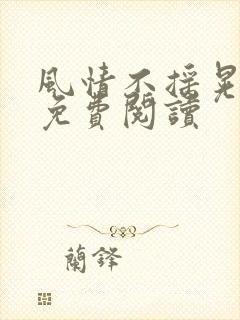 風情不搖晃
免費閱讀
蘭鋒